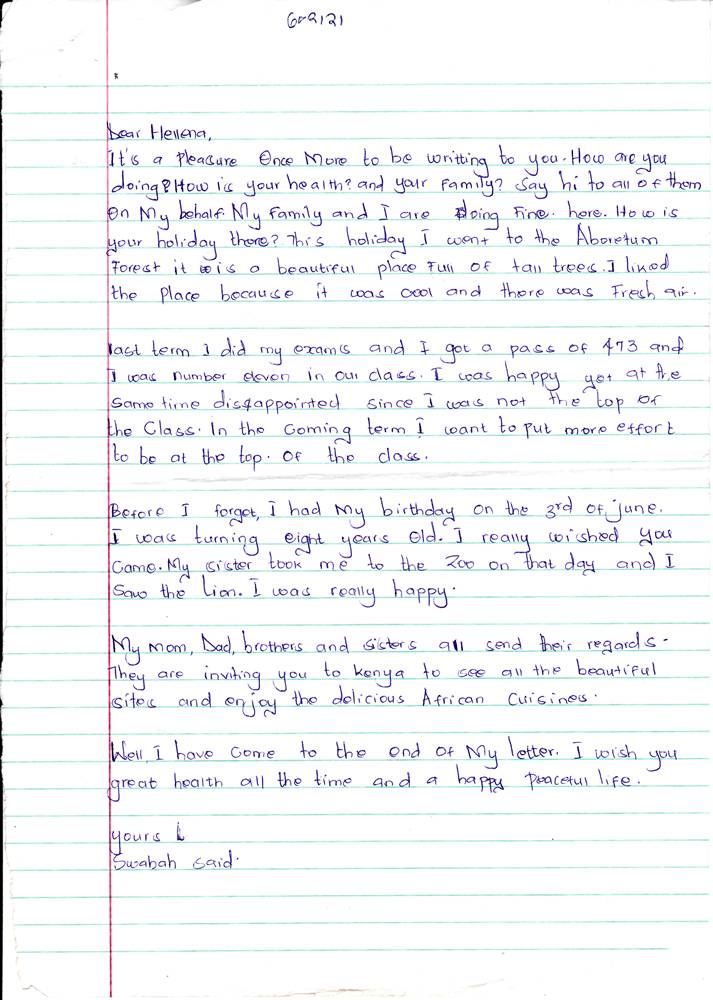 Dear Hellena,
It's a Pleasure Once More to be writting to you. How are you
doing? How is your health? and your Family? Say hi to all of them
On My behalf. My Family and I are doing Fine. here. How is
your holiday there? This holiday I went to the Aboretum
Forest it is a beautiful place Full of tall trees. I liked
the Place because it was cool and there was Fresh air.
last term I did my exams and I got a pass of 473 and
I was number eleven in our class. I was happy yet at the
Same time disappointed since I was not the top of
the Class. In the Coming term I want to put more effort
to be at the top. Of the class.
Before I forget, I had My birthday on the 3rd of june.
I was turning eight years Old. I really wished you
Came. My sister took me to the Zoo on that day and I
Saw the Lion. I was really happy.
My mom, Dad, brothers and sisters all send their regards.
They are inviting you to Kenya to see all the beautiful
sites and enjoy the delicious African Cuisines.
Well, I have Come to the end of My letter. I wish you
great health all the time and a happy Peaceful life.
yours
Swabah said.